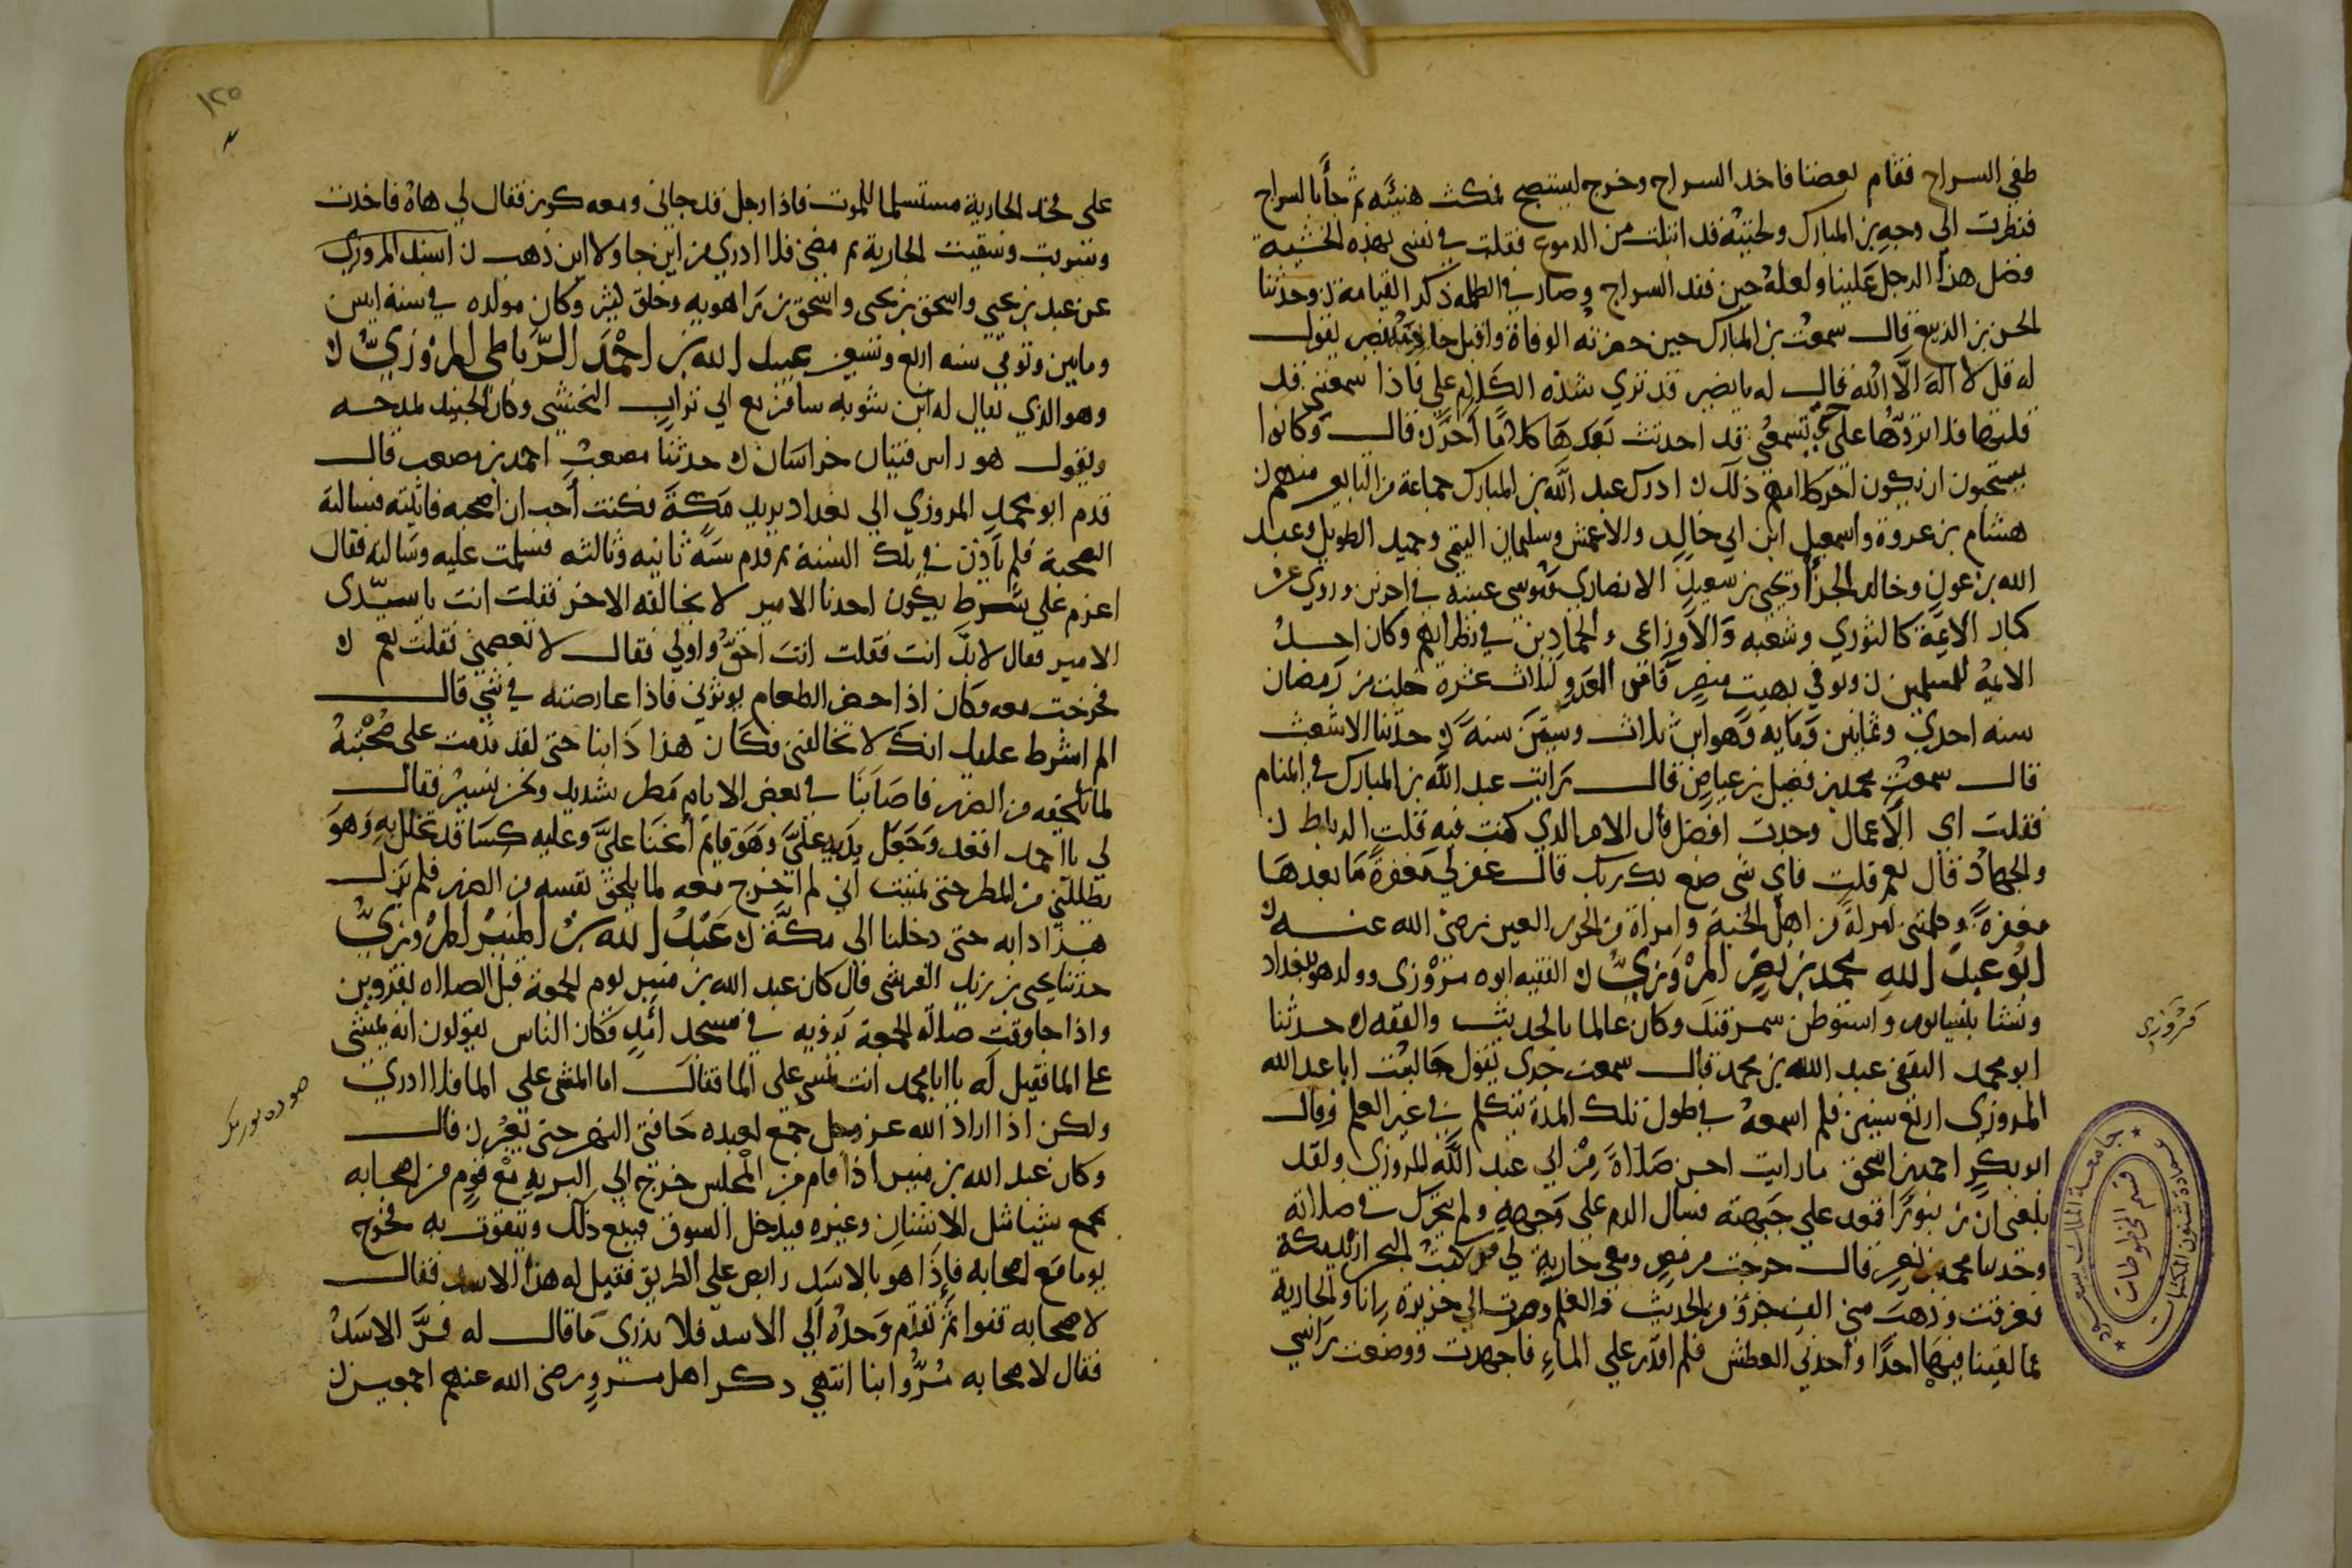 طفي السراج فقام بعضنا فاخد السراج وخرج ليستصبح فمكث هنيئه ثم جأنا بالسراج
فنظرت الي وجه بن المبارك ولحيته قد ابتلت من الدموع فقلت في نفسي بهذه الخشية
فضل هذا الرجل علينا ولعله حين فقد السراج وصار في الظلمه ذكر القيامة ن وحدثنا
الحسن بن الربيع قال سمعت بن المبارك حين حضرته الوفاة واقبل نصر يقول
له قل لا اله الا الله فقال له يا نصر قد تري شدة الكلام علي فاذا سمعتني قد
قلتها فلا تردها علي حتي تسمعني قد احدثت بعدها كلاما اخر ن قال وكانوا
يستحبون ان يكون اخر كلامهم ذلك ن ادرك عبد الله بن المبارك جماعة من التابعين منهم
هشام بن عروة واسمعيل ابن ابي خالد والاعمش وسليمان التيمي وحميد الطويل وعبد
الله بن عون وخالد الحذأ ويحيي بن سعيد الانصاري وموسي بن عقبة في اخرين وروي عن
كبار الائمة كالثوري وشعبه والاوزاعي والحمادين في نظرائهم وكان احد
الائمة المسلمين ن وتوفي بهيت منصرفا من الغزو لثلاث عشرة خلت من رمضان
سنه احدي وثمانين ومايه وهو ابن ثلاث وستين سنة ن حدثنا الاشعث
قال سمعت محمد بن فضيل بن عياض قال رايت عبد الله بن المبارك في المنام
فقلت اي الاعمال وجدت افضل قال الامر الذي كنت فيه قلت الرباط
والجهاد قال نعم قلت فاي شي صنع بك ربك قال غفر لي مغفرة ما بعدها
مغفرة وكلمتني امراة من اهل الجنة وامراة من الحور العين رضي الله عنه
ابو عبد الله محمد بن نصر المروزي ن الفقيه ابوه مروزي وولد هو ببغداد
ونشا بنيسابور واستوطن سمرقند وكان عالما بالحديث والفقه ن حدثنا
ابو محمد الثقفي عبد الله بن محمد قال سمعت جدي يقول جالست ابا عبد الله
المروزي اربع سنين فلم اسمعه في طول تلك المدة يتكلم في غير العلم وقال
ابو بكر احمد بن اسحق ما رايت احسن صلاة من ابي عبد الله المروزي ولقد
بلغني ان زنبورا قعد علي جبهته فسال الدم علي وجهه ولم يتحرك في صلاته
وحدثنا محمد بن نصر قال خرجت من مصر ومعي جارية لي فركبت البحر اريد مكة
فغرقت وذهب مني الف جزؤ من الحديث والعلم وصرت الي جزيرة انا والجارية
فما لقينا فيها احدا واخدني العطش فلم اقدر علي الماء فاجهدت ووضعت راسي
مروزي
جامعة الملك سعود
عمادة شئون المكتبات
قسم المخطوطات
١٢٥
علي فخد الجارية مستسلما للموت فاذا رجل قد جاني ومعه كوز فقال لي هاه فاخدت
وشربت وسقيت الجارية ثم مضي فلا ادري من اين جا ولا اين ذهب ن اسند المروزي
عن عبد بن يحيي واسحق بن يحيي واسحق بن راهويه وخلق كثير وكان مولده في سنة اثنين
ومايتين وتوفي سنه اربع وتسعين عبد الله بن احمد الرباطي المروزي ن
وهو الذي يقال له ابن شبويه سافر مع ابي تراب النخشبي وكان الجنيد يمدحه
ويقول هو راس فتيان خراسان ن حدثنا مصعب احمد بن مصعب قال
قدم ابو محمد المروزي الي بغداد يريد مكة فكنت أحب ان اصحبه فاتيته فسالته
الصحبة فلم يأذن في تلك السنة ثم قدم سنة ثانيه وثالثه فسلمت عليه وسالته فقال
اعزم علي شرط يكون احدنا الامير لا يخالفه الاخر فقلت انت يا سيدي
الامير فقال لا بل انت فقلت انت احق واولي فقال لا تعصني فقلت نعم ن
فخرجت معه وكان اذا حضر الطعام يوثرني فاذا عارضته في شي قال
الم اشرط عليك انك لا تخالفني فكان هذا دابنا حتي لقد ندمت علي صحبته
لما يلحقه من الضرر فاصابنا في بعض الايام مطر شديد ونحن نسير فقال
لي يا احمد اقعد وجعل يديه علي وهو قايم انحنا علي وعليه كسا قد تخلل به وهو
يظللني من المطر حتي تمنيت أني لم اخرج معه لما يلحق نفسه من الضرر فلم يزل
هذا دابه حتي دخلنا الي مكة ن عبد الله بن المنير المروزي
حدثنا يحيي بن يزيد القرشي قال كان عبد الله بن منير يوم الجمعة قبل الصلاه بقزوين
واذا جا وقت صلاة الجمعة يروه في مسجد امل فكان الناس يقولون انه يمشي
علي الما فقيل له يا ابا محمد انت تمشي علي الما فقال اما المشي علي الما فلا ادري
ولكن اذا اراد الله عز وجل جمع لعبده حافتي النهر حتي يعبر ن قال
وكان عبد الله بن منير اذا قام من المجلس خرج الي البريه مع قوم من اصحابه
يجمع شيا مثل الاشنان وغيره فيدخل السوق فيبيع ذلك ويتقوت به فخرج
يوما مع اصحابه فإذا هو بالاسد رابض علي الطريق فقيل له هذا الاسد فقال
لاصحابه قفوا ثم تقدم وحده الي الاسد فلا يدري ما قال له فر الاسد
فقال لاصحابه مروا ابنا انتهي ذكر اهل مرو رضي الله عنهم اجمعين ن